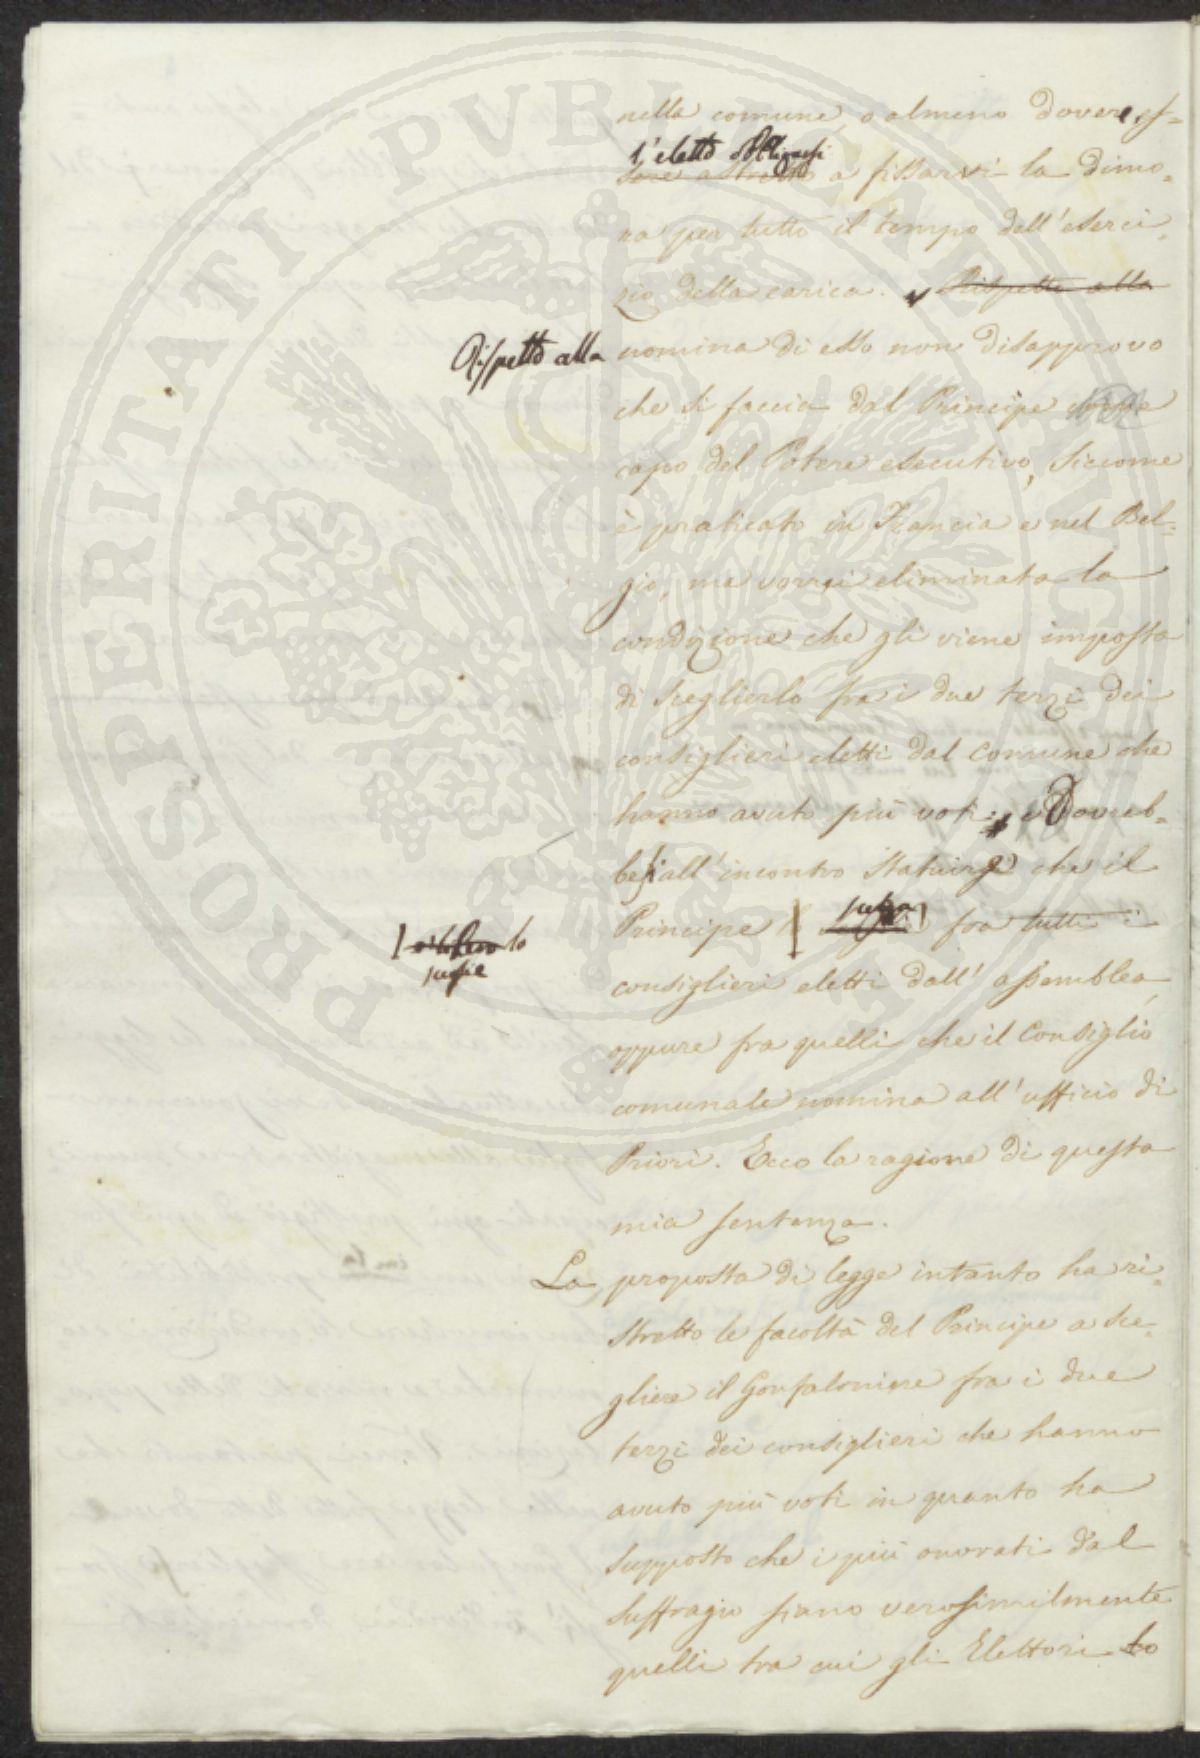 nella comune, o almeno dovere es=
l'eletto obbligarsi
sere astretto a fissarvi la dimo=
ra per tutto il tempo dell'eserci=
zio della carica. Rispetto alla
Rispetto alla
nomina di esso non disapprovo
che si faccia dal Principe come
capo del Potere esecutivo, siccome
è praticato in Francia e nel Bel=
gio, ma vorrei eliminata la
condizione che gli viene imposta
di sceglierlo fra i due terzi dei
consiglieri eletti dal comune che
hanno avuto più voti; e Dovreb=
besi all'incontro statuire che il
Principe fra tutti i
lo
scelga
consiglieri eletti dall'assemblea,
oppure fra quelli che il Consiglio
comunale nomina all'ufficio di
Priori. Ecco la ragione di questa
mia sentenza.
La proposta di legge intanto ha ri=
stretto le facoltà del Principe a sce=
gliere il Gonfaloniere fra i due
terzi dei consiglieri che hanno
avuto più voti in quanto ha
supposto che i più onorati dal
suffragio siano verosimilmente
quelli tra cui gli Elettori lo
PROSPERITATI PUBLICAE AUGENDAE